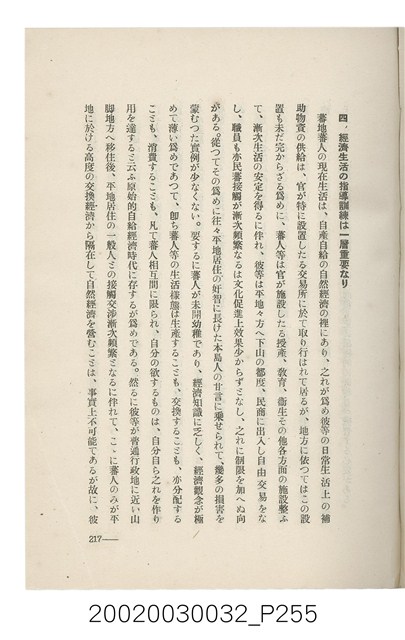 四、經濟生活の指導訓練は一層重要なり
蕃地蕃人の現在生活は、自產自給の自然經濟の裡にあり、之れが爲め彼等の日常生活上の補
助物資の供給は、官が特に設置したる交易所に於て取り行はれて居るが、地方に依つてはこの設
置も未だ完からざる爲めに、蕃人等は官が施設したる授產、敎育、衞生その他各方面の施設整ふ
て、漸次生活の安定を得るに伴れ、彼等は平地々方へ下山の都度、民商に出入し自由交易をな
し、職員も亦民蕃接觸が漸次頻繁なるは文化促進上效果少からずとなし、之れに制限を加へぬ向
がある。從つてその爲めに往々平地居住の奸智に長けた本島人の甘言に乘せられて、幾多の損害を
蒙むつた實例が少なくない。要するに蕃人が未開幼稚であり、經濟知識に乏しく、經濟觀念が極
めて薄い爲めであつて、卽ち蕃人等の生活樣態は生產することも、交換することも、亦分配する
ことも、消費することも、凡て蕃人相互間に限られ、自分の欲するものは、自分自ら之れを作り
用を達すると云ふ原始的自給經濟時代に存するが爲めである。然るに彼等が普通行政地に近い山
脚地方へ移住後、平地居住の一般人との接觸交涉漸次頻繁となるに伴れて、ここに蕃人のみが平
地に於ける高度の交換經濟から隔在して自然經濟を營むことは、事實上不可能であるが故に、彼
217
20020030032_P255